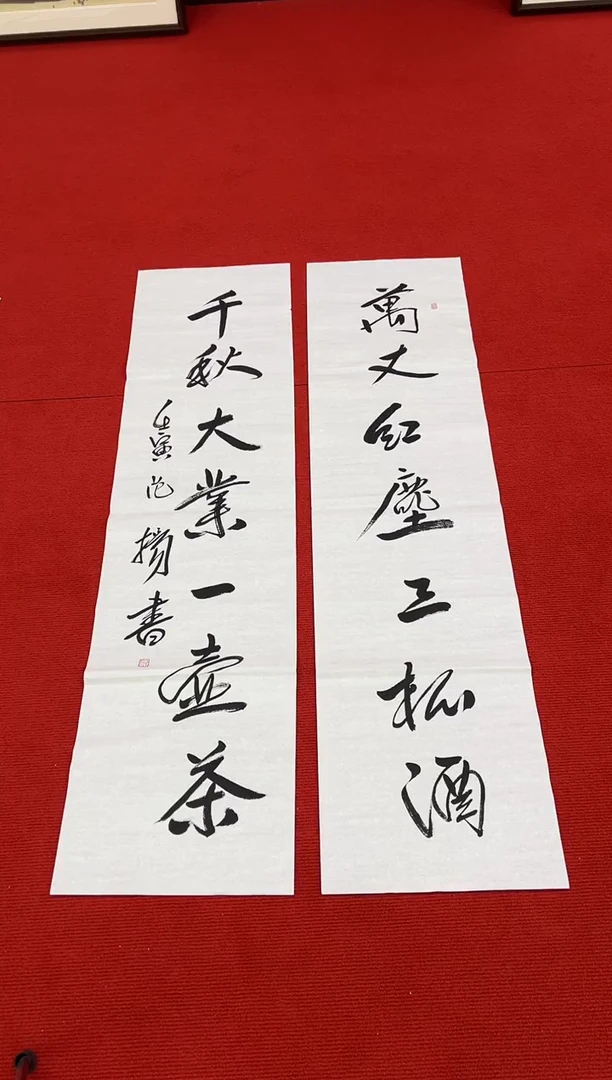 萬丈紅塵三杯酒
千秋大業一壺茶
壬寅 書